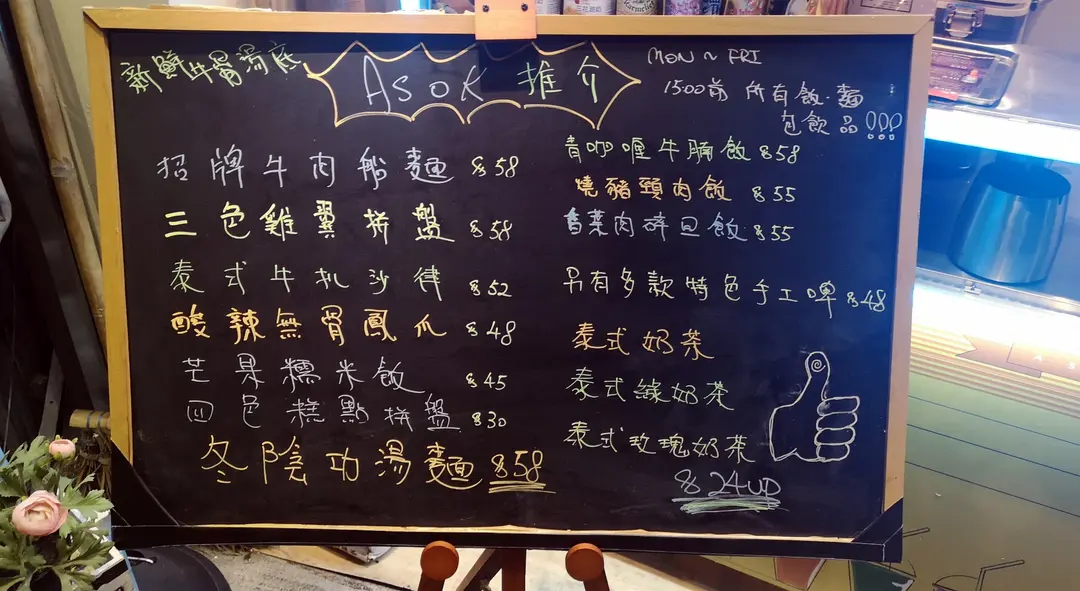 新鮮牛骨湯底
Asok 推介
MON ~ FRI
15:00前 所有飯.麵
包飲品!!!
招牌牛肉船麵 $58
三色雞翼拼盤 $58
泰式牛扒沙律 $52
酸辣無骨鳳爪 $48
芒果糯米飯 $45
四色糕點拼盤 $30
冬陰功湯麵 $58
青咖喱牛腩飯 $58
燒豬頸肉飯 $55
香菜肉碎旦飯 $55
另有多款特色手工啤 $48
泰式奶茶
泰式綠奶茶
泰式玫瑰奶茶
$24up